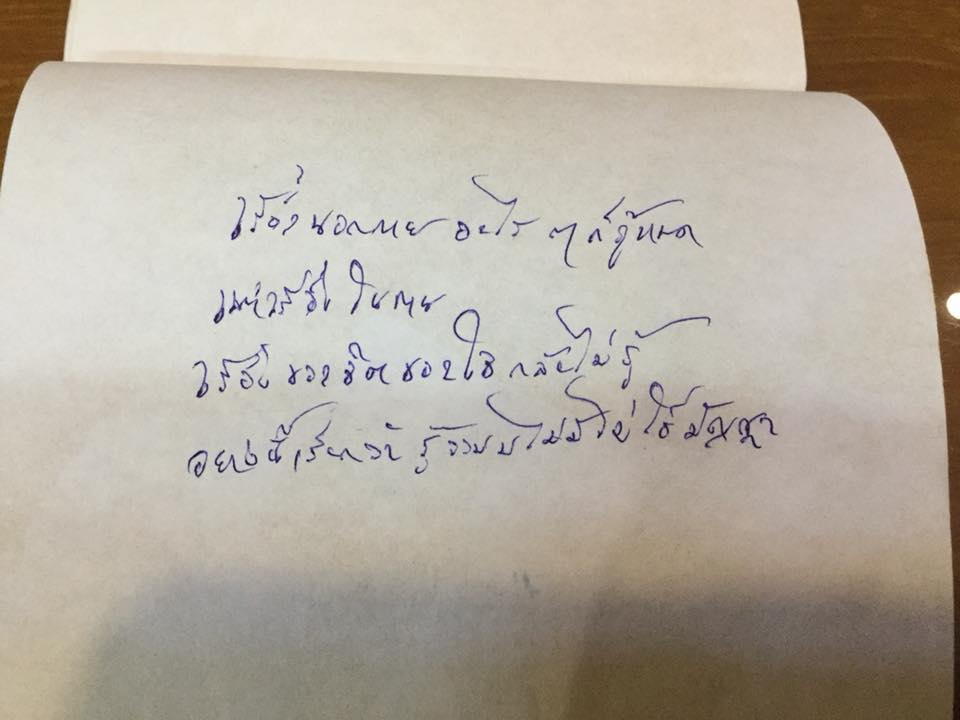 เรื่องนอกกาย อะไร ๆ ก็รู้หมด
แต่เรื่อง ในกาย
เรื่อง ของจิตของใจ กลับไม่รู้
อย่างนี้เรียกว่า รู้ ไม่ ใช้ปัญญา